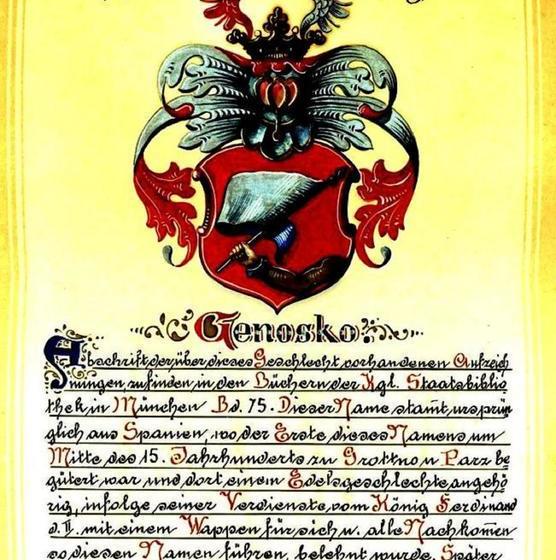 Genosko
Abschrift der über dieses Geschlecht vorhandenen Aufzeich
nungen zu finden in den Büchern der Kgl. Staatsbiblio
thek in München Bd. 75. Dieser Name stam̄t ursprün
glich aus Spanien, wo der Erste dieses Namens um
Mitte des 15. Jahrhunderts zu Grottno u Parz be
gütert war und dort einem Edelsgeschlechte angehö
rig, infolge seiner Verdienste vom König Ferdinand
d. II. mit einem Wappen für sich u. alle Nachkom̄en
so diesen Namen führen, belehnt wurde. Später